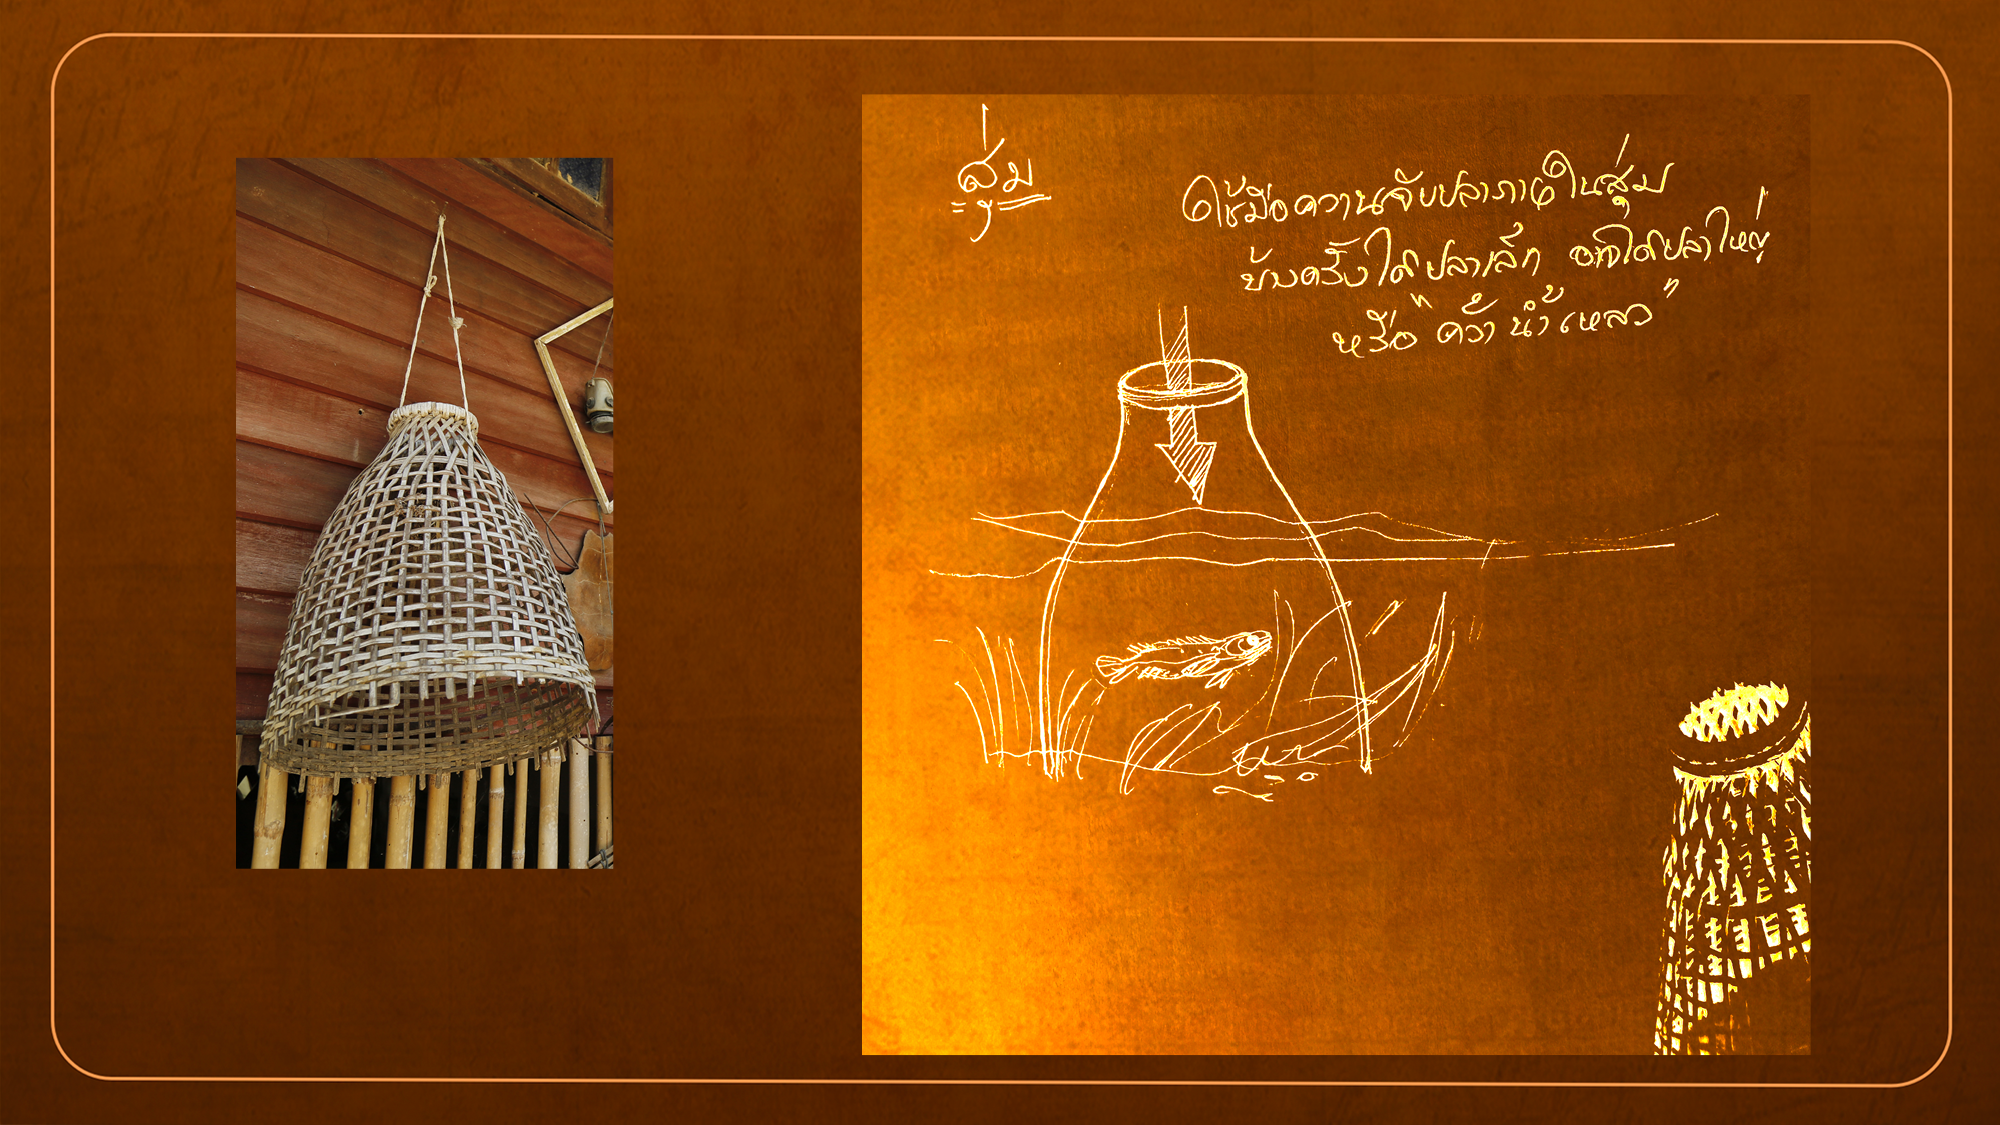 สุ่ม
ใช้มือควานจับปลาภายในสุ่ม
บางครั้งได้ปลาเล็ก อาจได้ปลาใหญ่
หรือ "คว้าน้ำเหลว"